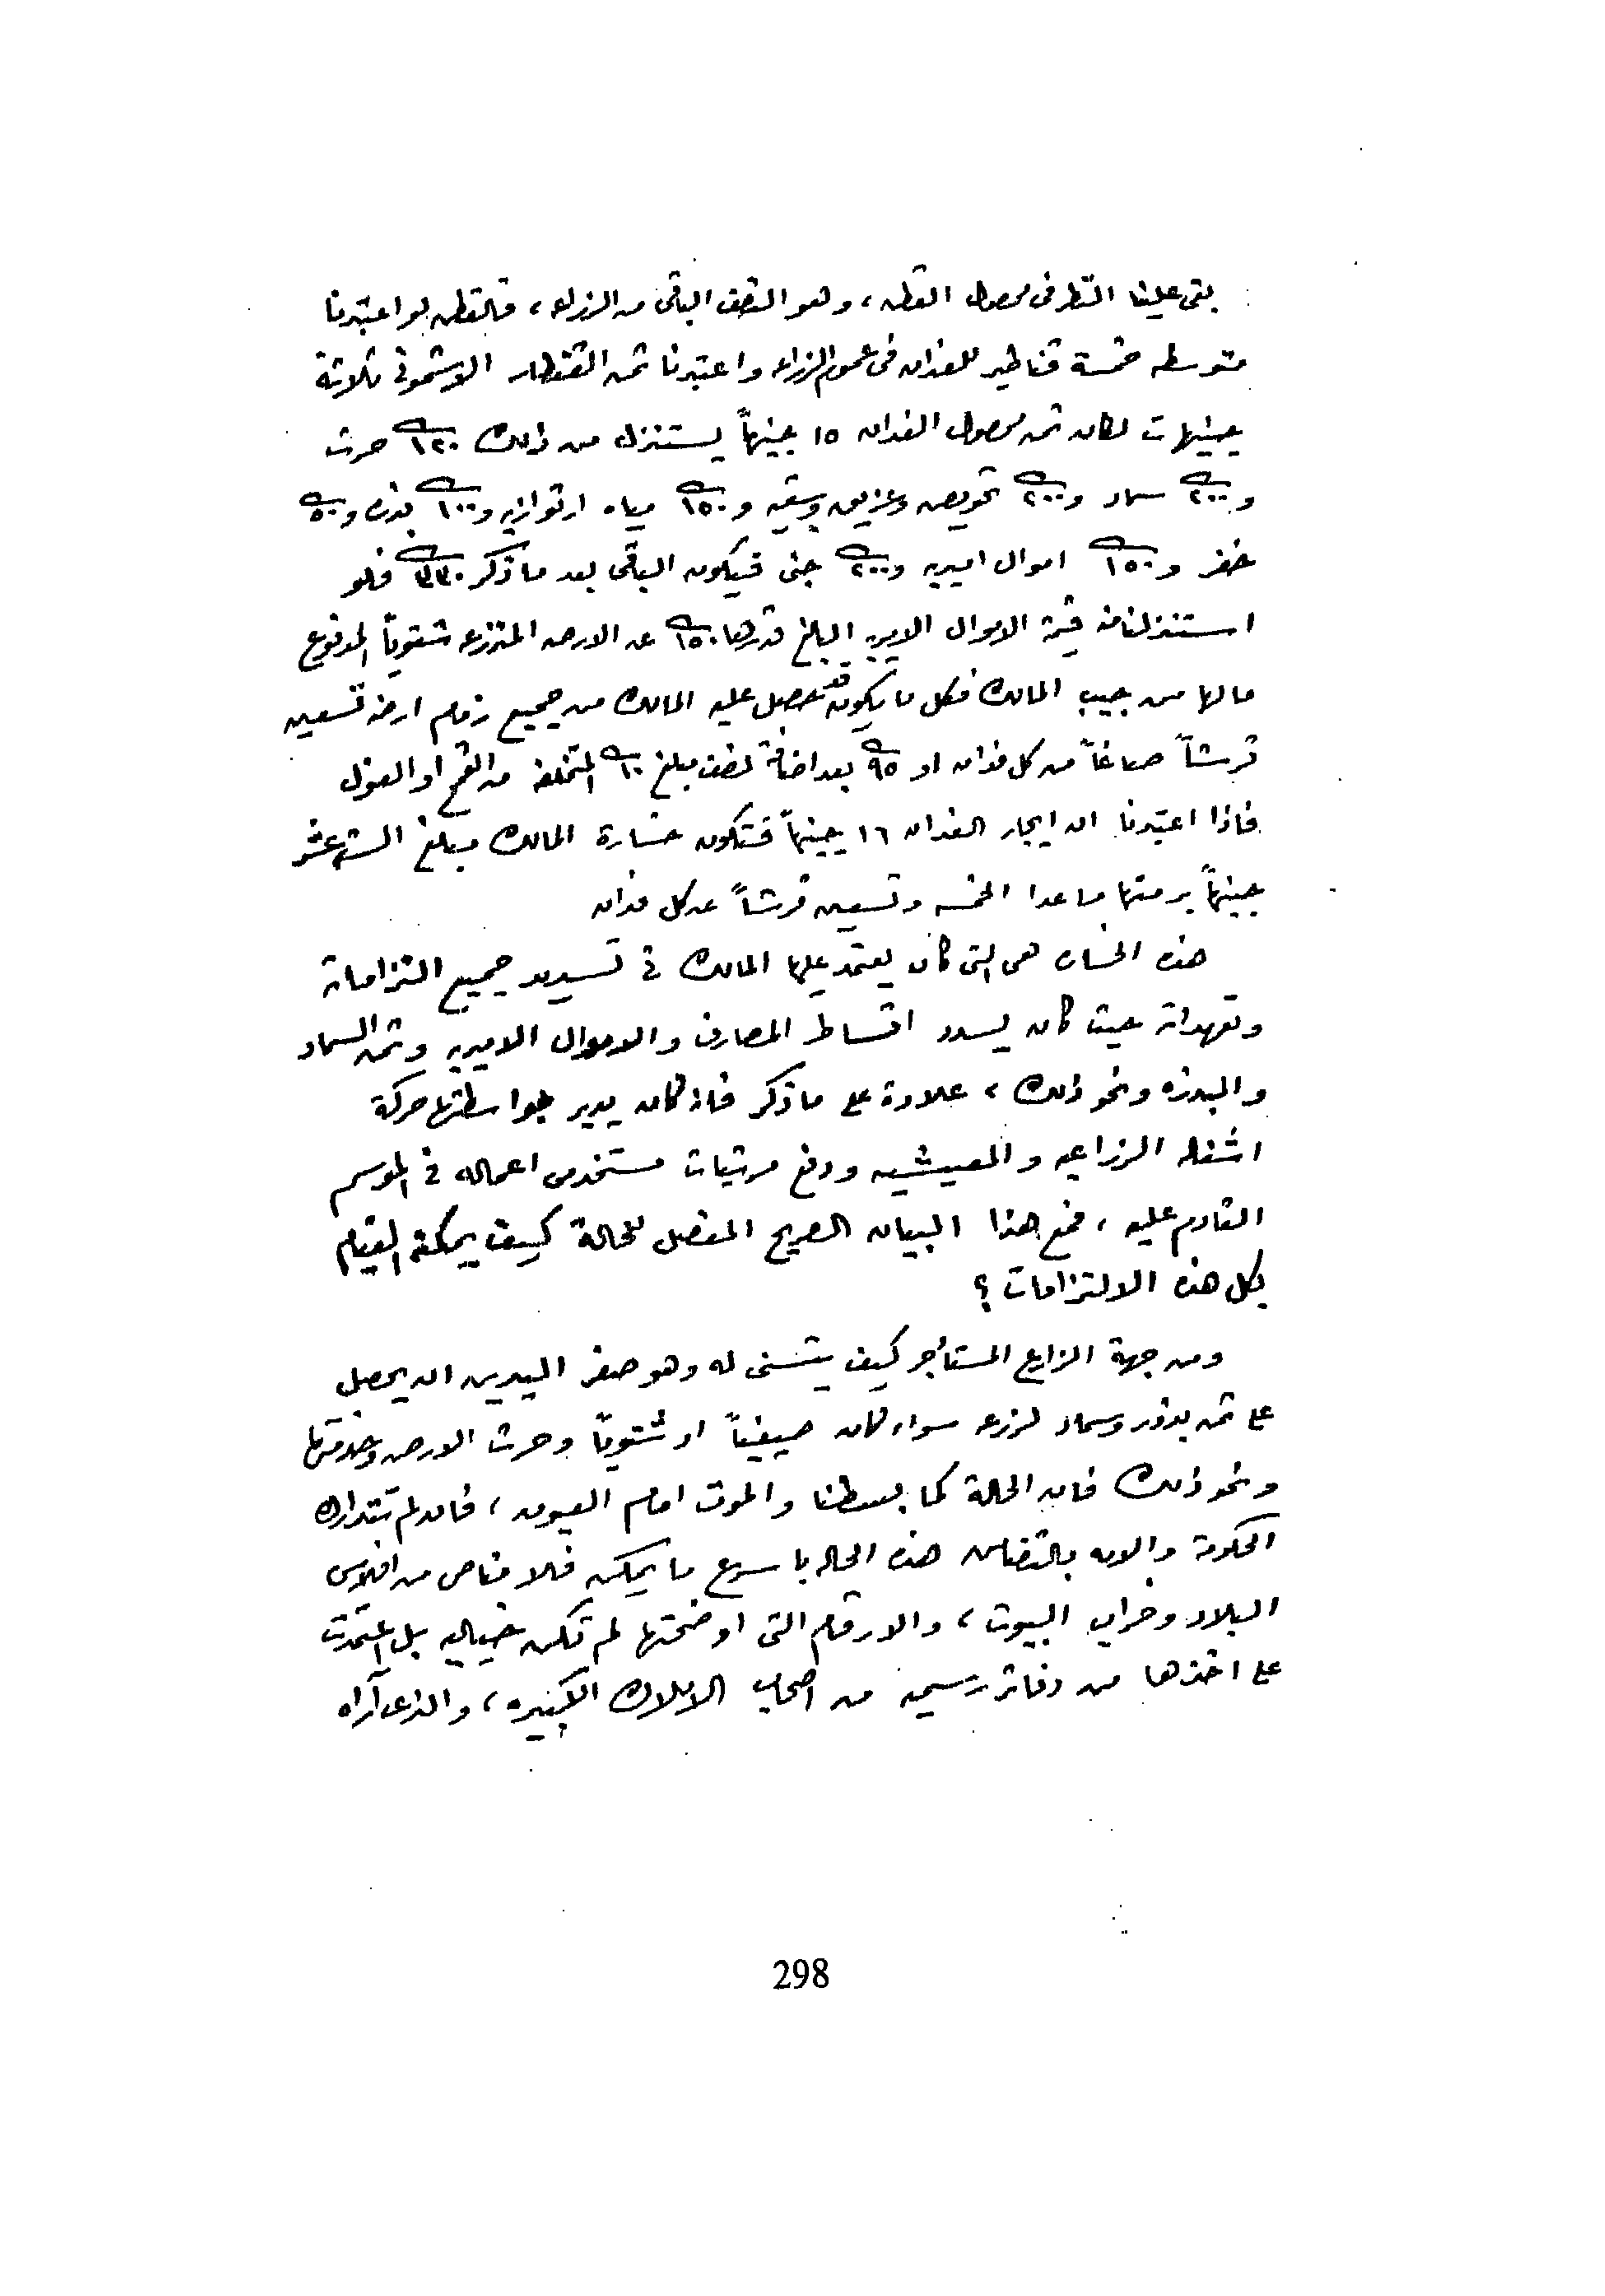 بقى علينا النظر فى محصول القطن، وهو النصف الباقى من الزراعه، فالقطن لو اعتبرنا
متوسطه خمسة قناطير للفدان فى عموم الزراعه واعتبرنا ثمن القنطار الاشمونى ثلاثة
جنيهات لكان ثمن محصول الفدان ١٥ جنيهاً يستنزل من ذلك ١٢٠ حرث
و٢٠٠ سماد و٢٠٠ تحويض وعزيق وسقيه و١٥٠ مياه ارتوازيه و١٠٠ بذره و٥٠
خفر و١٥٠ اموال اميريه و٢٠٠ جنى فيكون الباقى بعد ما ذكر ٣٣٠ فلو
استنزلنا منه قيمة الاموال الاميريه البالغ قدرها ١٥٠ عن الارض المنزرعه شتوياً المدفوع
مالها من جيب المالك فكل ما يكون قد تحصل عليه المالك من جميع زمام ارضه تسعين
قرشاً صاغاً من كل فدان او ٩٥ بعد اضافة نصف مبلغ ١٠ المتخلفه من القمح او الفول
فاذا اعتبرنا ان ايجار الفدان ١٦ جنيهاً فتكون خسارة المالك مبلغ الستة عشر
جنيهاً برمتها ما عدا الخمسه وتسعين قرشاً عن كل فدان
هذه الخساره هى التى كان يعتمد عليها المالك فى تسديد جميع التزاماته
وتعهداته حيث كان يسدد اقساط المصارف والاموال الاميريه وثمن السماد
والبذره ونحو ذلك، علاوة على ما ذكر فانه كان يدير بواسطتها حركة
اشغاله الزراعيه والمعيشيه ودفع مرتبات مستخدمى اعماله فى الموسم
القادم عليه، فمع هذا البيان الصريح المفصل للحالة كيف يمكنه القيام
بكل هذه الالتزامات؟
ومن جهة الزارع المستأجر كيف يتسنى له وهو صفر اليدين ان يحصل
على ثمن بذور وسماد لزرعه سواء كان صيفياً او شتوياً وحرث الارض وخدمتها
ونحو ذلك فان الحالة كما بسطنا والموت امام العيون، فان لم تتدارك
الحكومة والامه بالتضامن هذه الحاله باسرع ما يمكن فلا مناص من افلاس
البلاد وخراب البيوت، والارقام التى اوضحتها لم تكن خياليه بل اعتمدت
على اخذها من دفاتر رسميه من اصحاب الاملاك الكبيره، والذى آراه
298